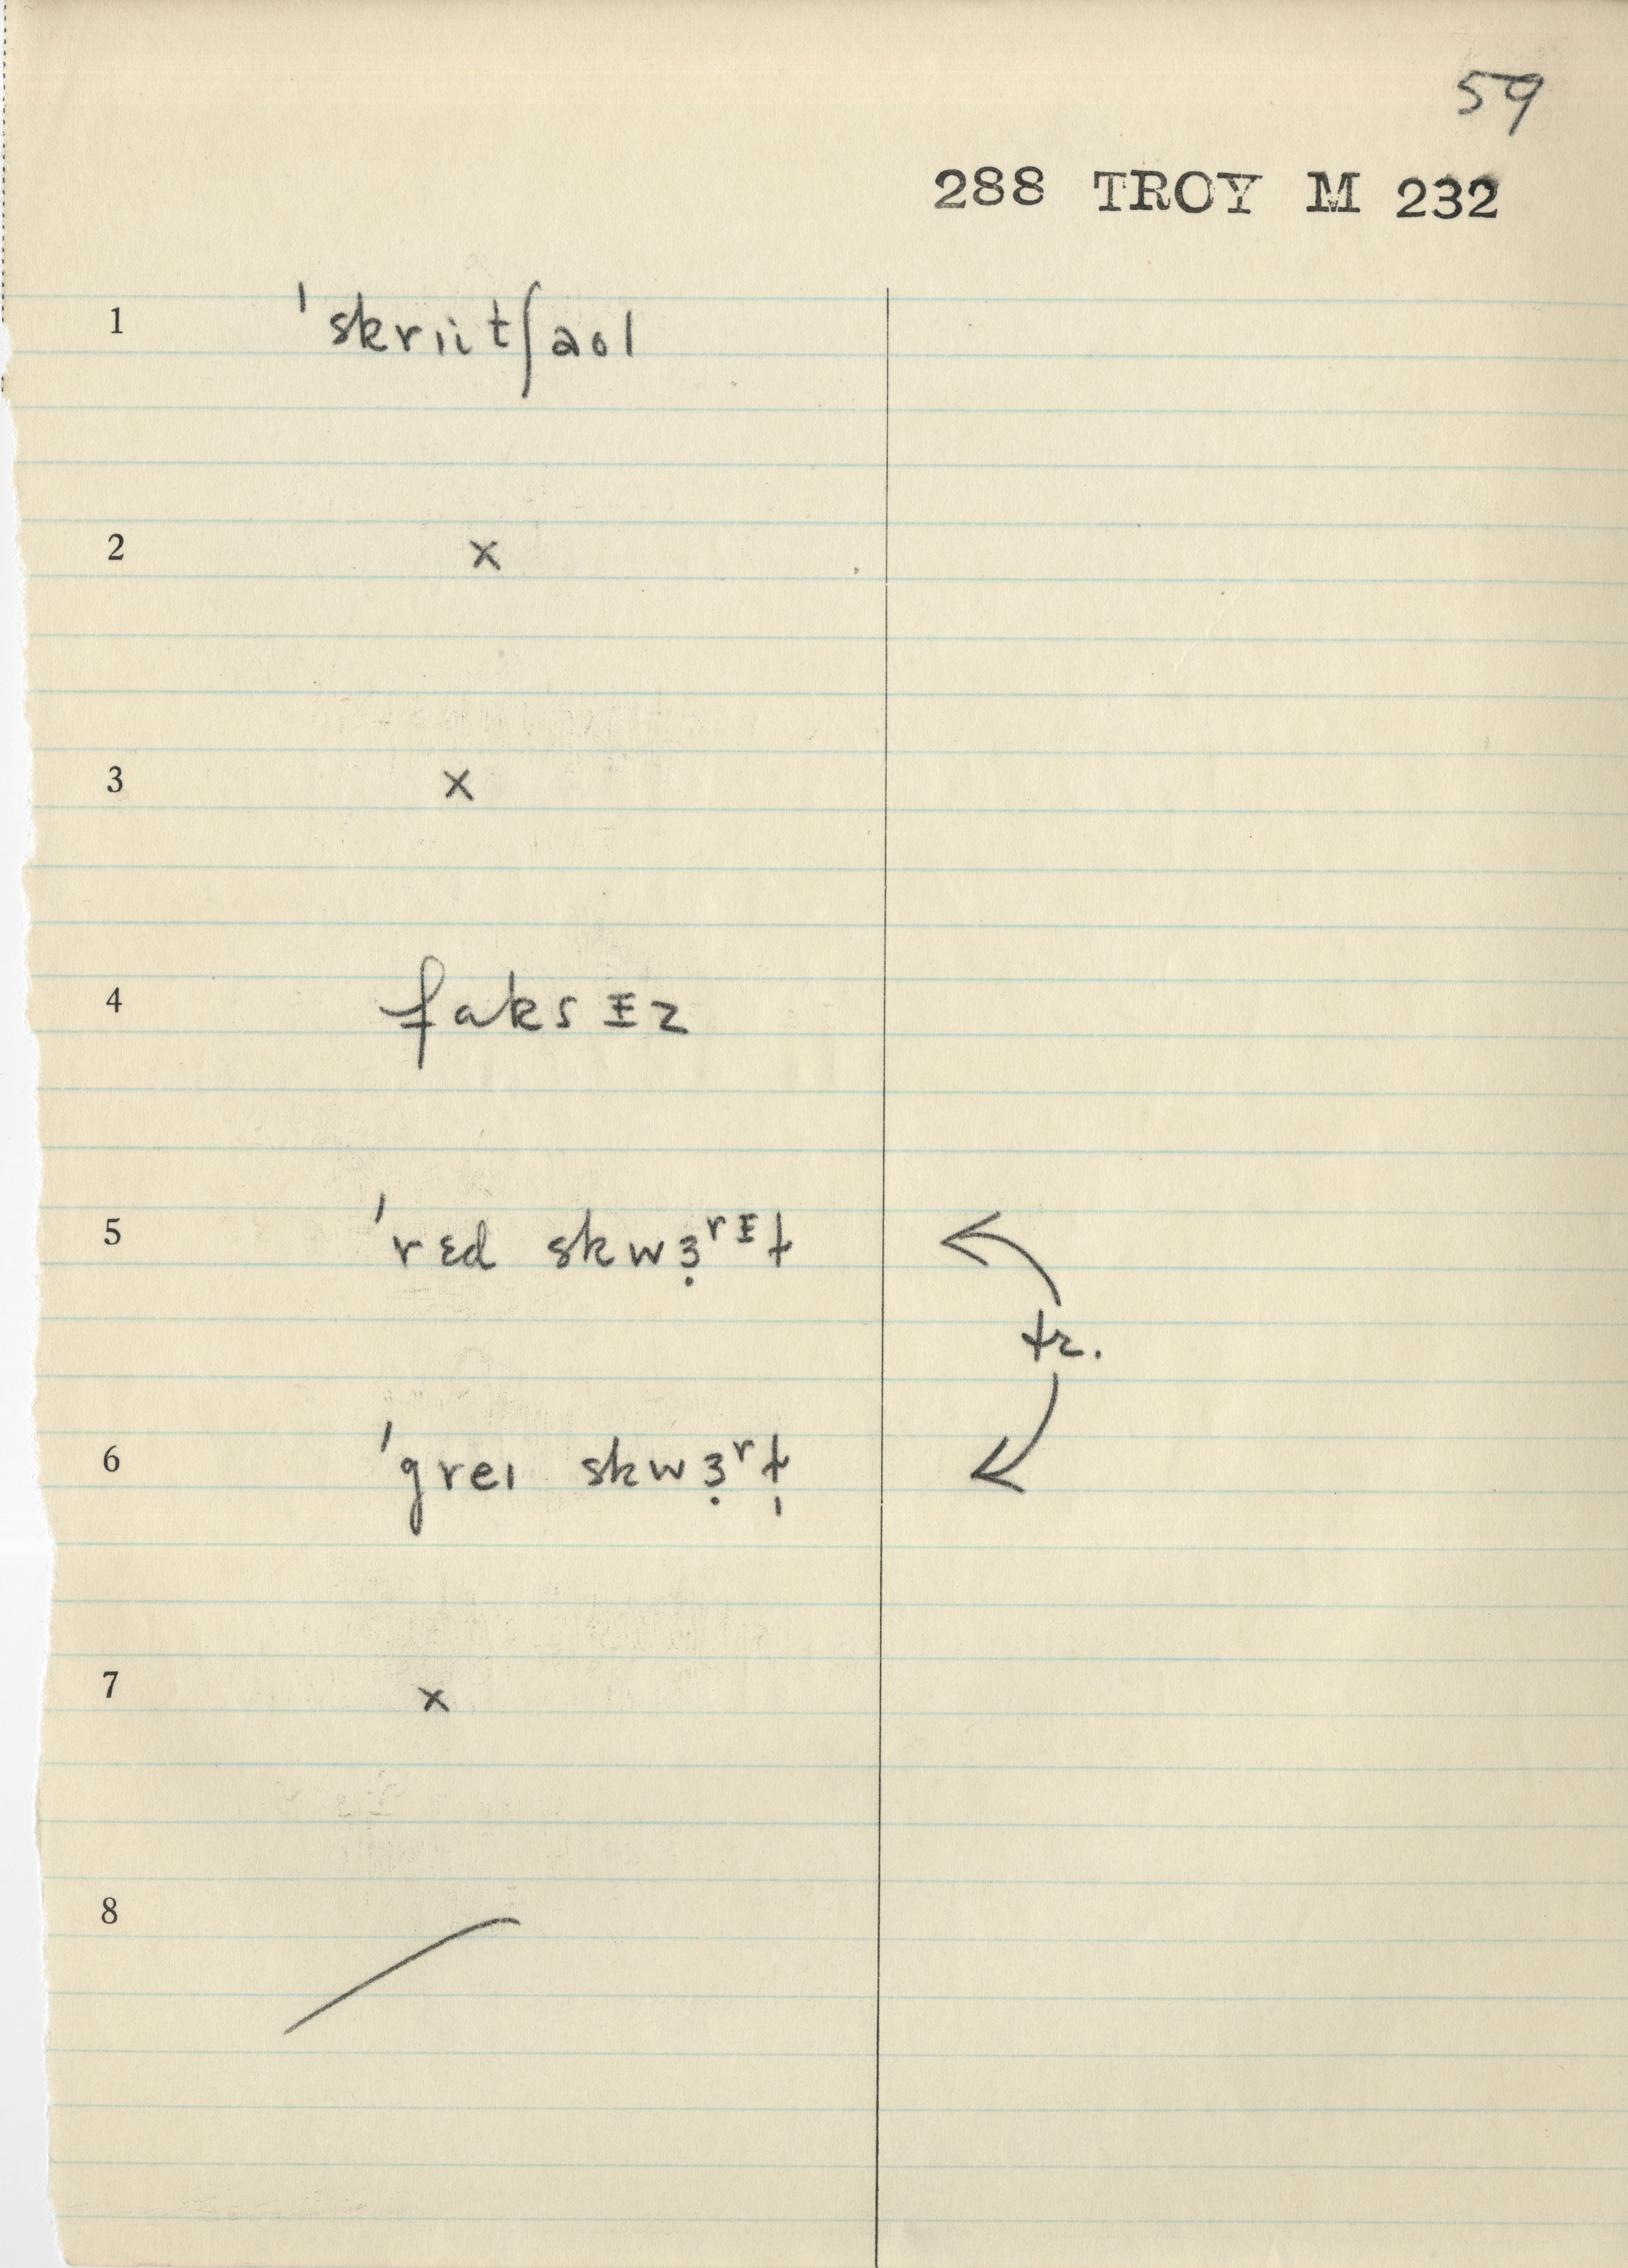 59
288 TROY M 232
1 ˈskriitʃaol
2 x
3 x
4 faksᵻz
5 ˈrɛd skwɜ̣ʳᵻt
tr.
6 ˈgreɪ skwɜ̣ʳt̩
7 x
8